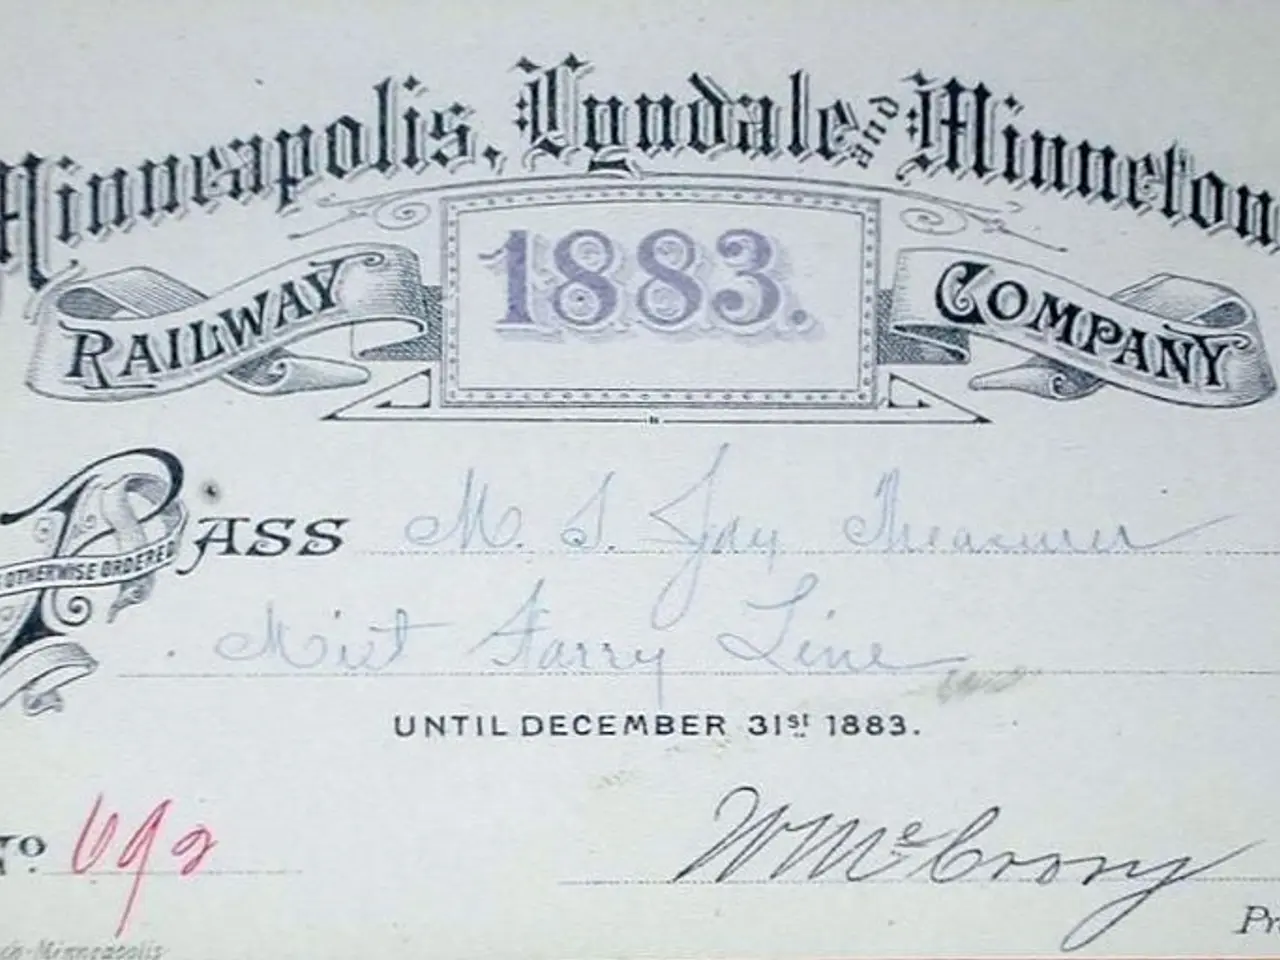 Minneapolis, Lyndale and Minneton
RAILWAY 1883. COMPANY
PASS M. S. Jay Treasurer
OTHERWISE ORDERED
Mist Farry Line
UNTIL DECEMBER 31st 1883.
No. 692
W McCrory
Pr
Minneapolis